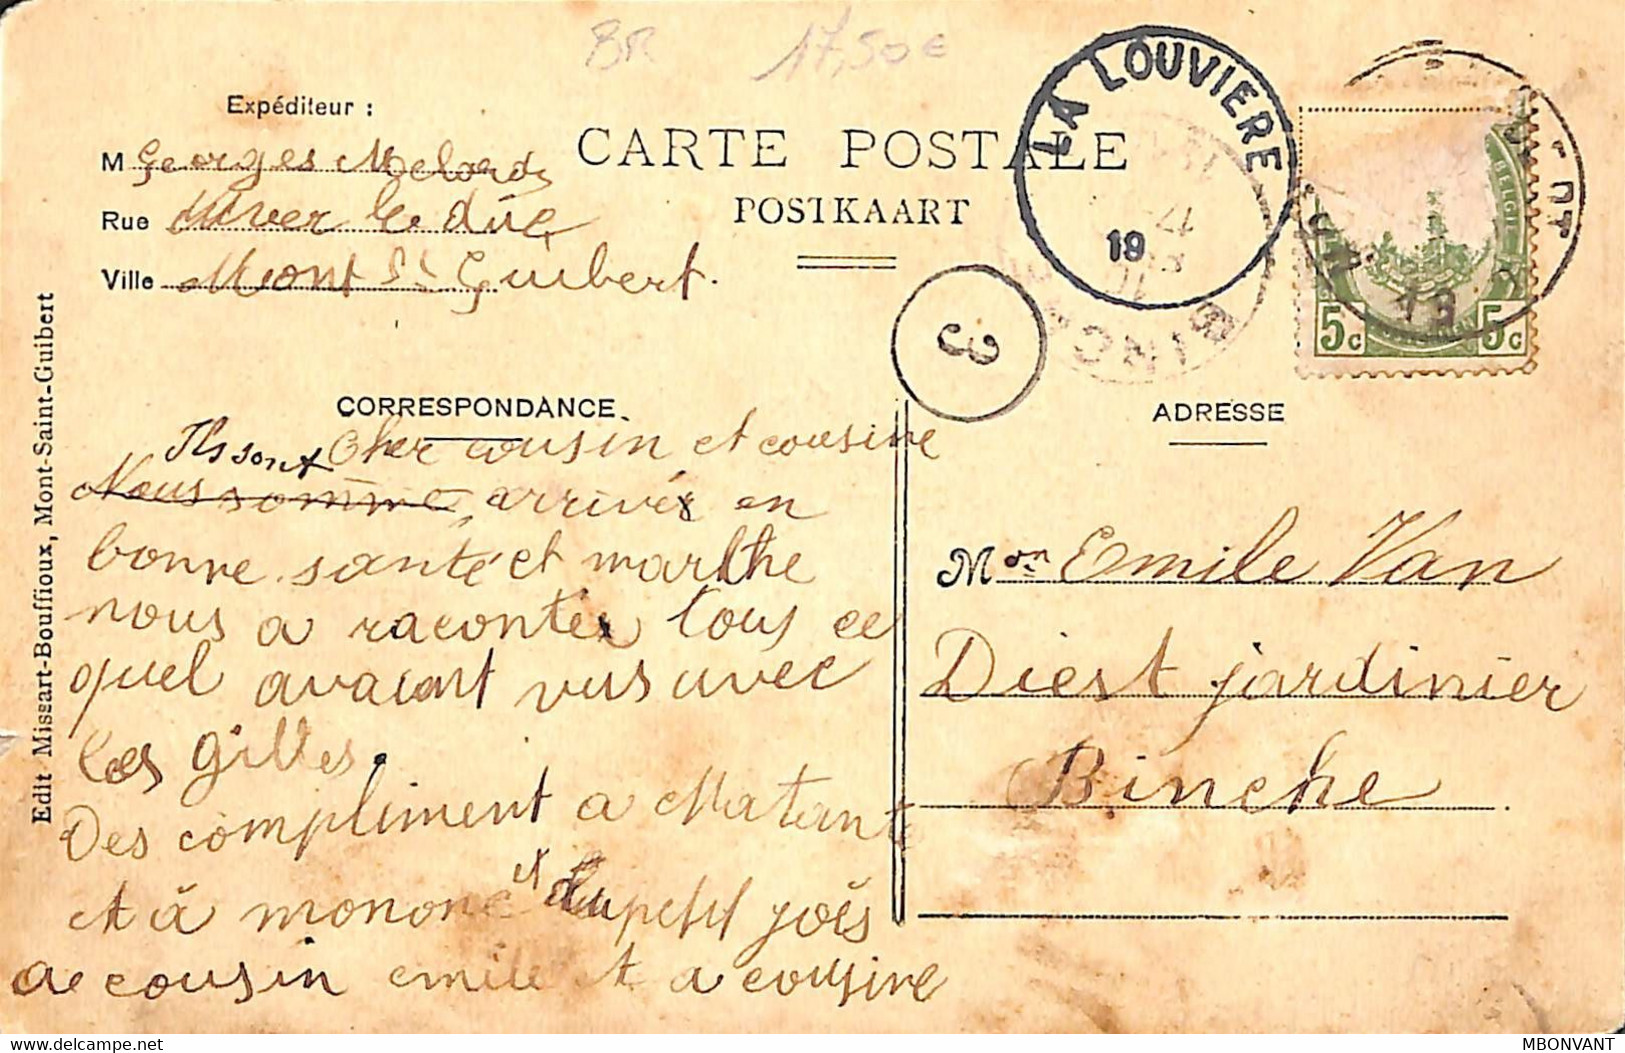 BR 17,50€
Expéditeur :
M Georges Melard
Rue le duc
Ville Mont St Guibert.
CARTE POSTALE
POSTKAART
LA LOUVIERE
19
BINCHE
3
BELGIE
5c 5c
19
Edit Missart-Bouffioux, Mont-Saint-Guibert
CORRESPONDANCE
Cher cousin et cousine
Ils sont
Nous somme arrivés en
bonne santé et marthe
nous a raconter tous ce
quel avaient vus avec
les gilles.
Des compliment a Matante
et à monone et du petit joës
de cousin emile et a cousine
ADRESSE
Mon Emile Van
Diest jardinier
Binche
Delcampe.net
MBONVANT